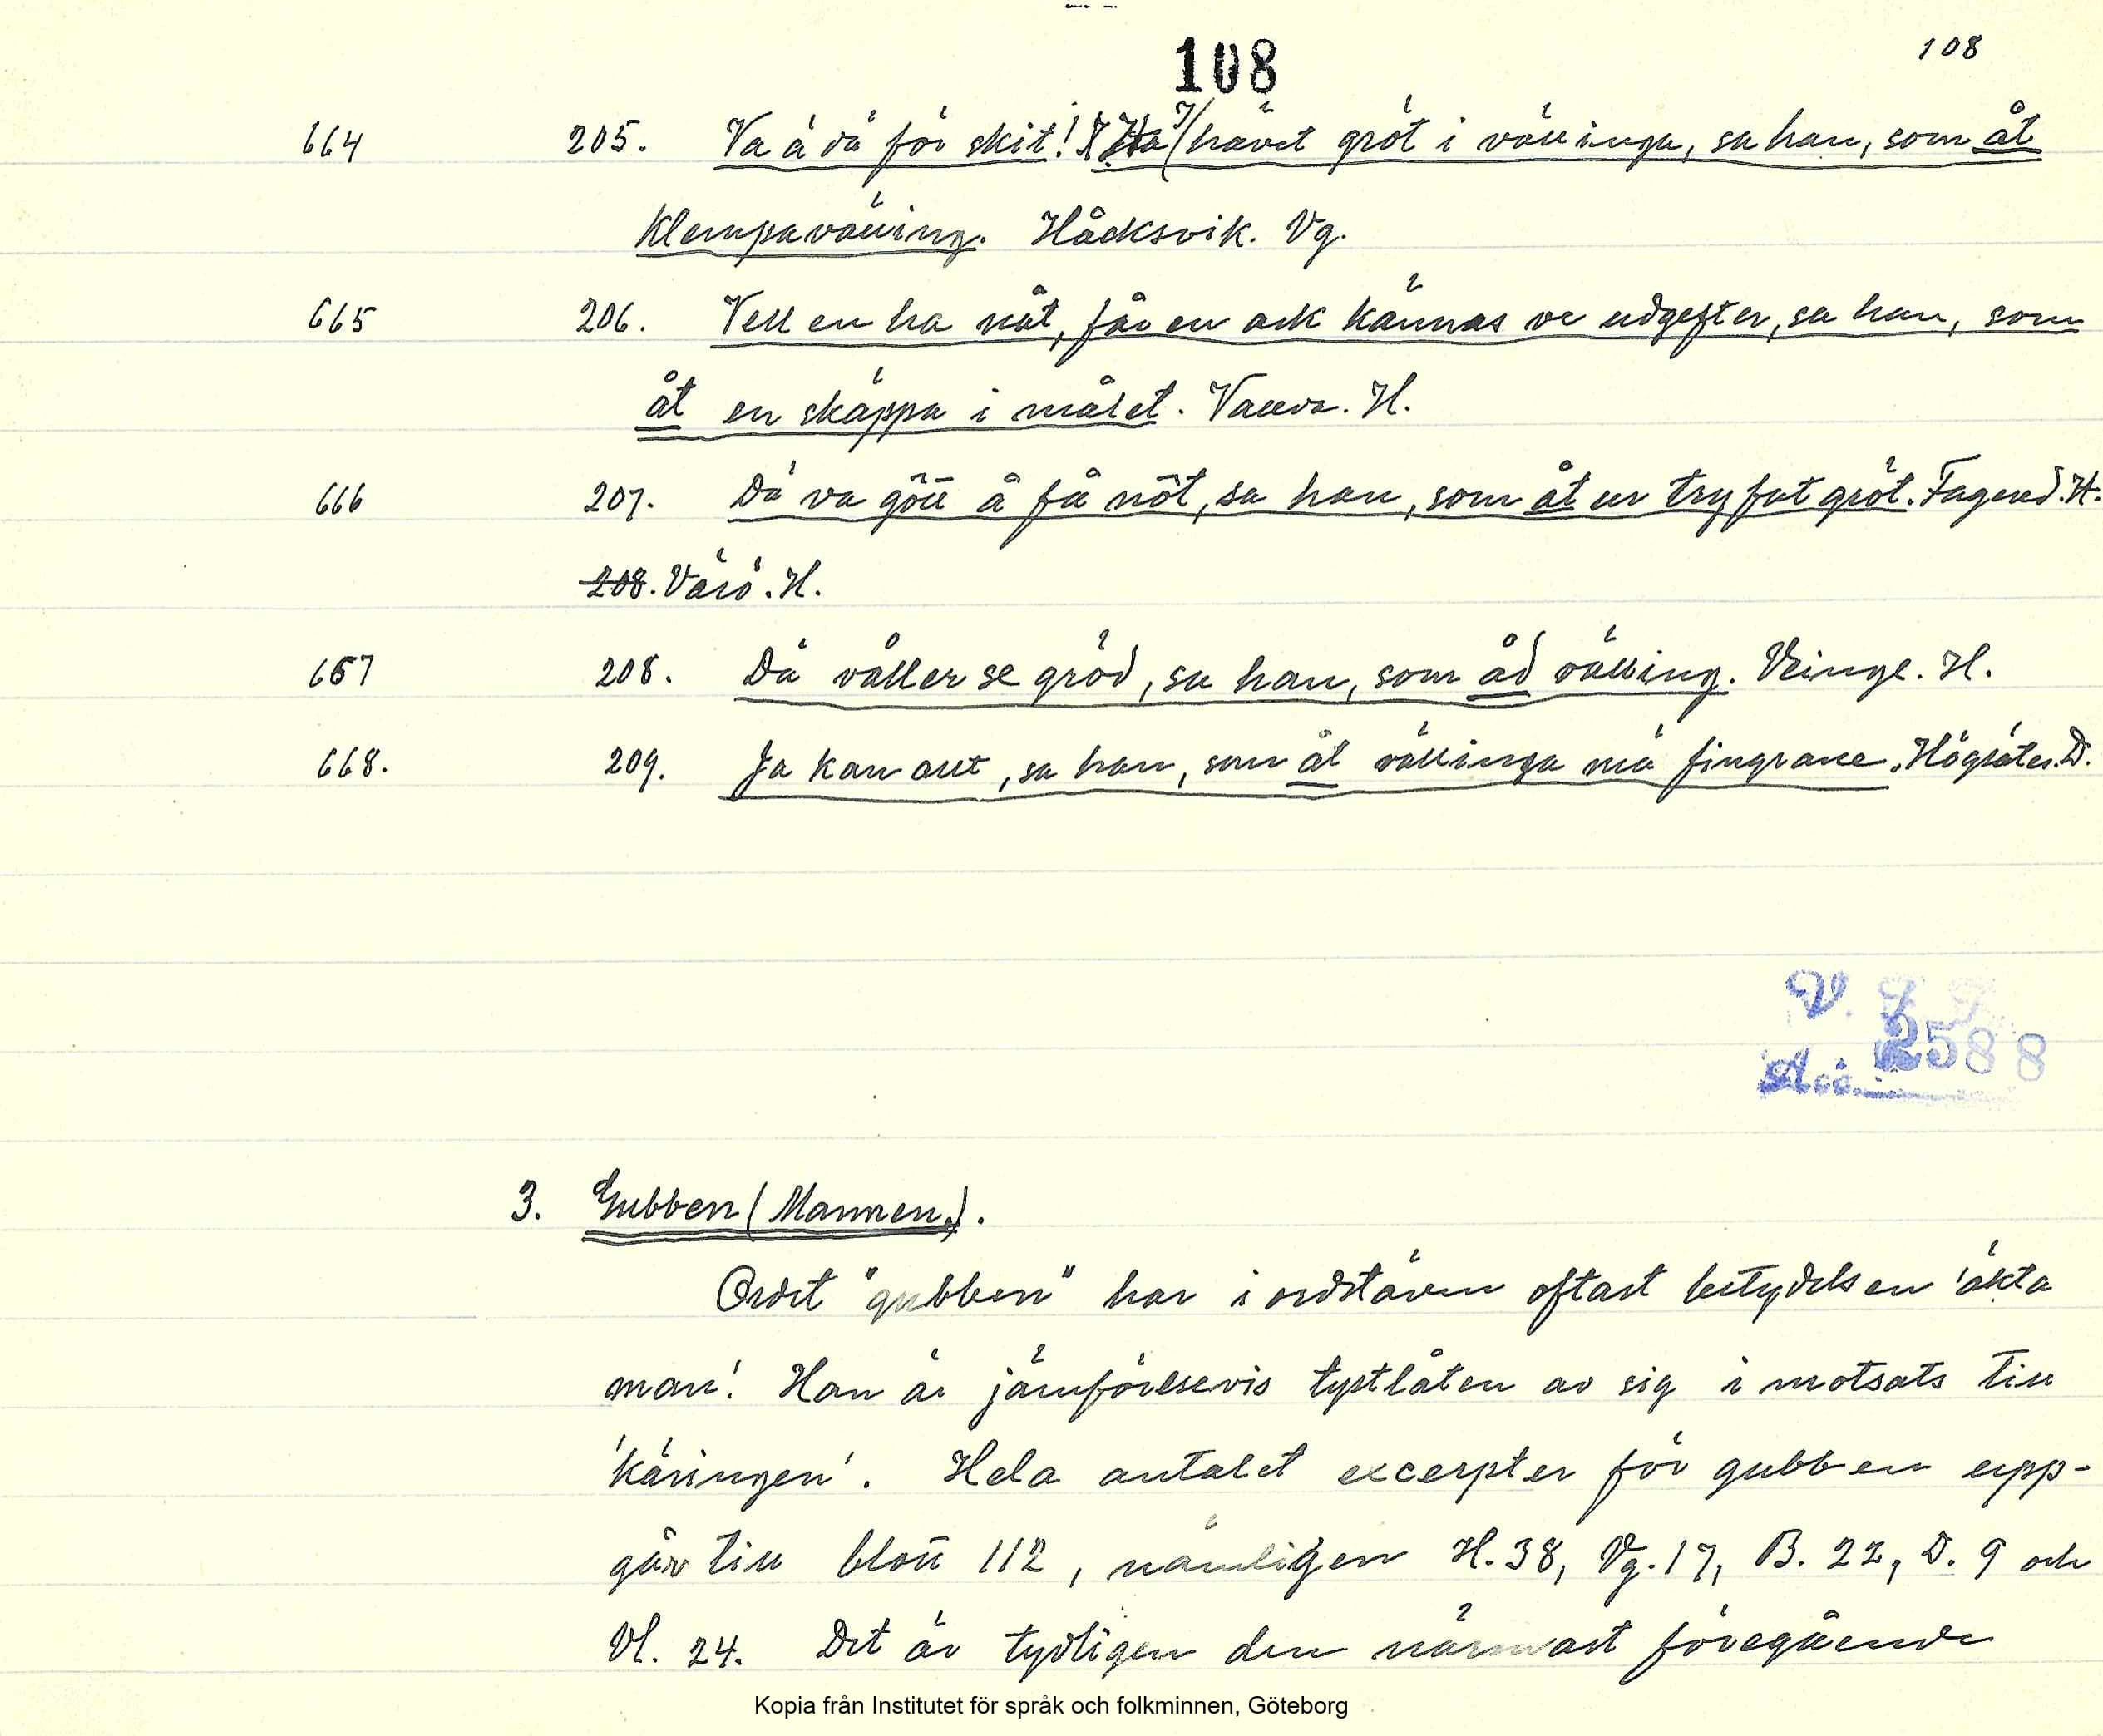 108
108
664 205. Va ä dä för skit! I hävet gröt i vällinga, sa han, som åt
klempavälling. Håcksvik. Vg.
665 206. Vell en ha nåt, får en ack kännas ve udgefter, sa han, som
åt en skäppa i målet. Valda. H.
666 207. Dä va gött å få nôt, sa han, som åt ur try fat gröt. Fagered. H.
208. Värö. H.
667 208. Dä våller se gröd, sa han, som åd välling. Veinge. H.
668. 209. Ja kan allt, sa han, som åt vällinga mä fingrane. Högsäter. D.
V. F. F.
Acc. 2588
3. Gubben (Mannen).
Ordet "gubben" har i ordstäven oftast betydelsen 'äkta
man'. Han är jämförelsevis tystlåten av sig i motsats till
'käringen'. Hela antalet excerpter för gubben upp-
går till blott 112, nämligen H. 38, Vg. 17, B. 22, D. 9 och
Vl. 24. Det är tydligen den närmast föregående
Kopia från Institutet för språk och folkminnen, Göteborg